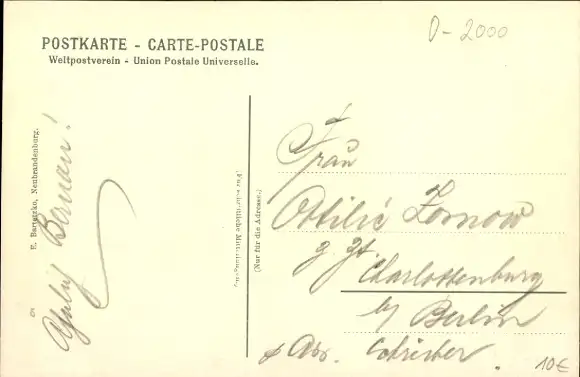 O - 2000
POSTKARTE - CARTE-POSTALE
Weltpostverein - Union Postale Universelle.
E. Bartetzko, Neubrandenburg.
(Nur für die Adresse.)
Frau
Ottilie Zornow
z. Zt.
Charlottenburg
b/ Berlin
p Adr. Schreiber.
10€